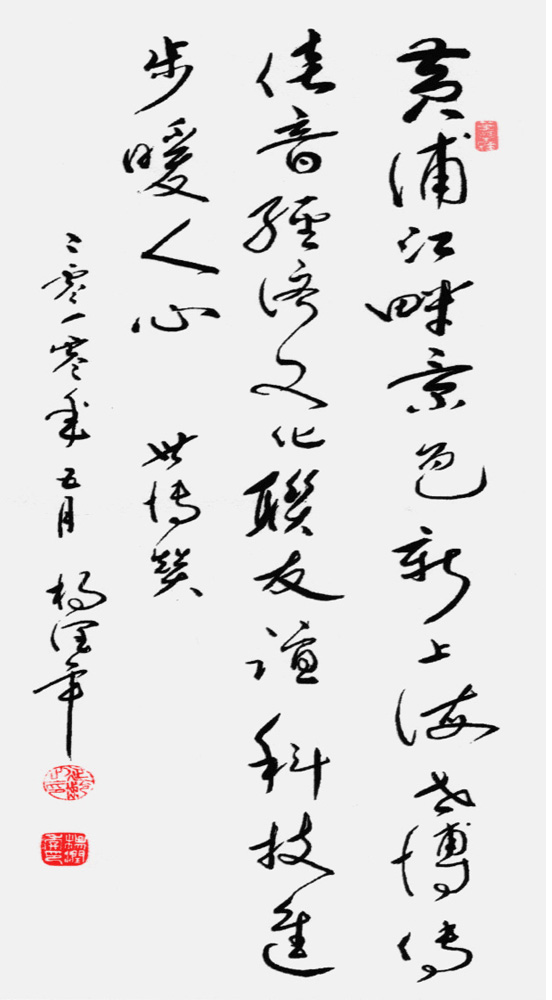 黄浦江畔景色新上海世博传
佳音經济文化聯友谊科技進
步暖人心
世博赞
二零一零年五月